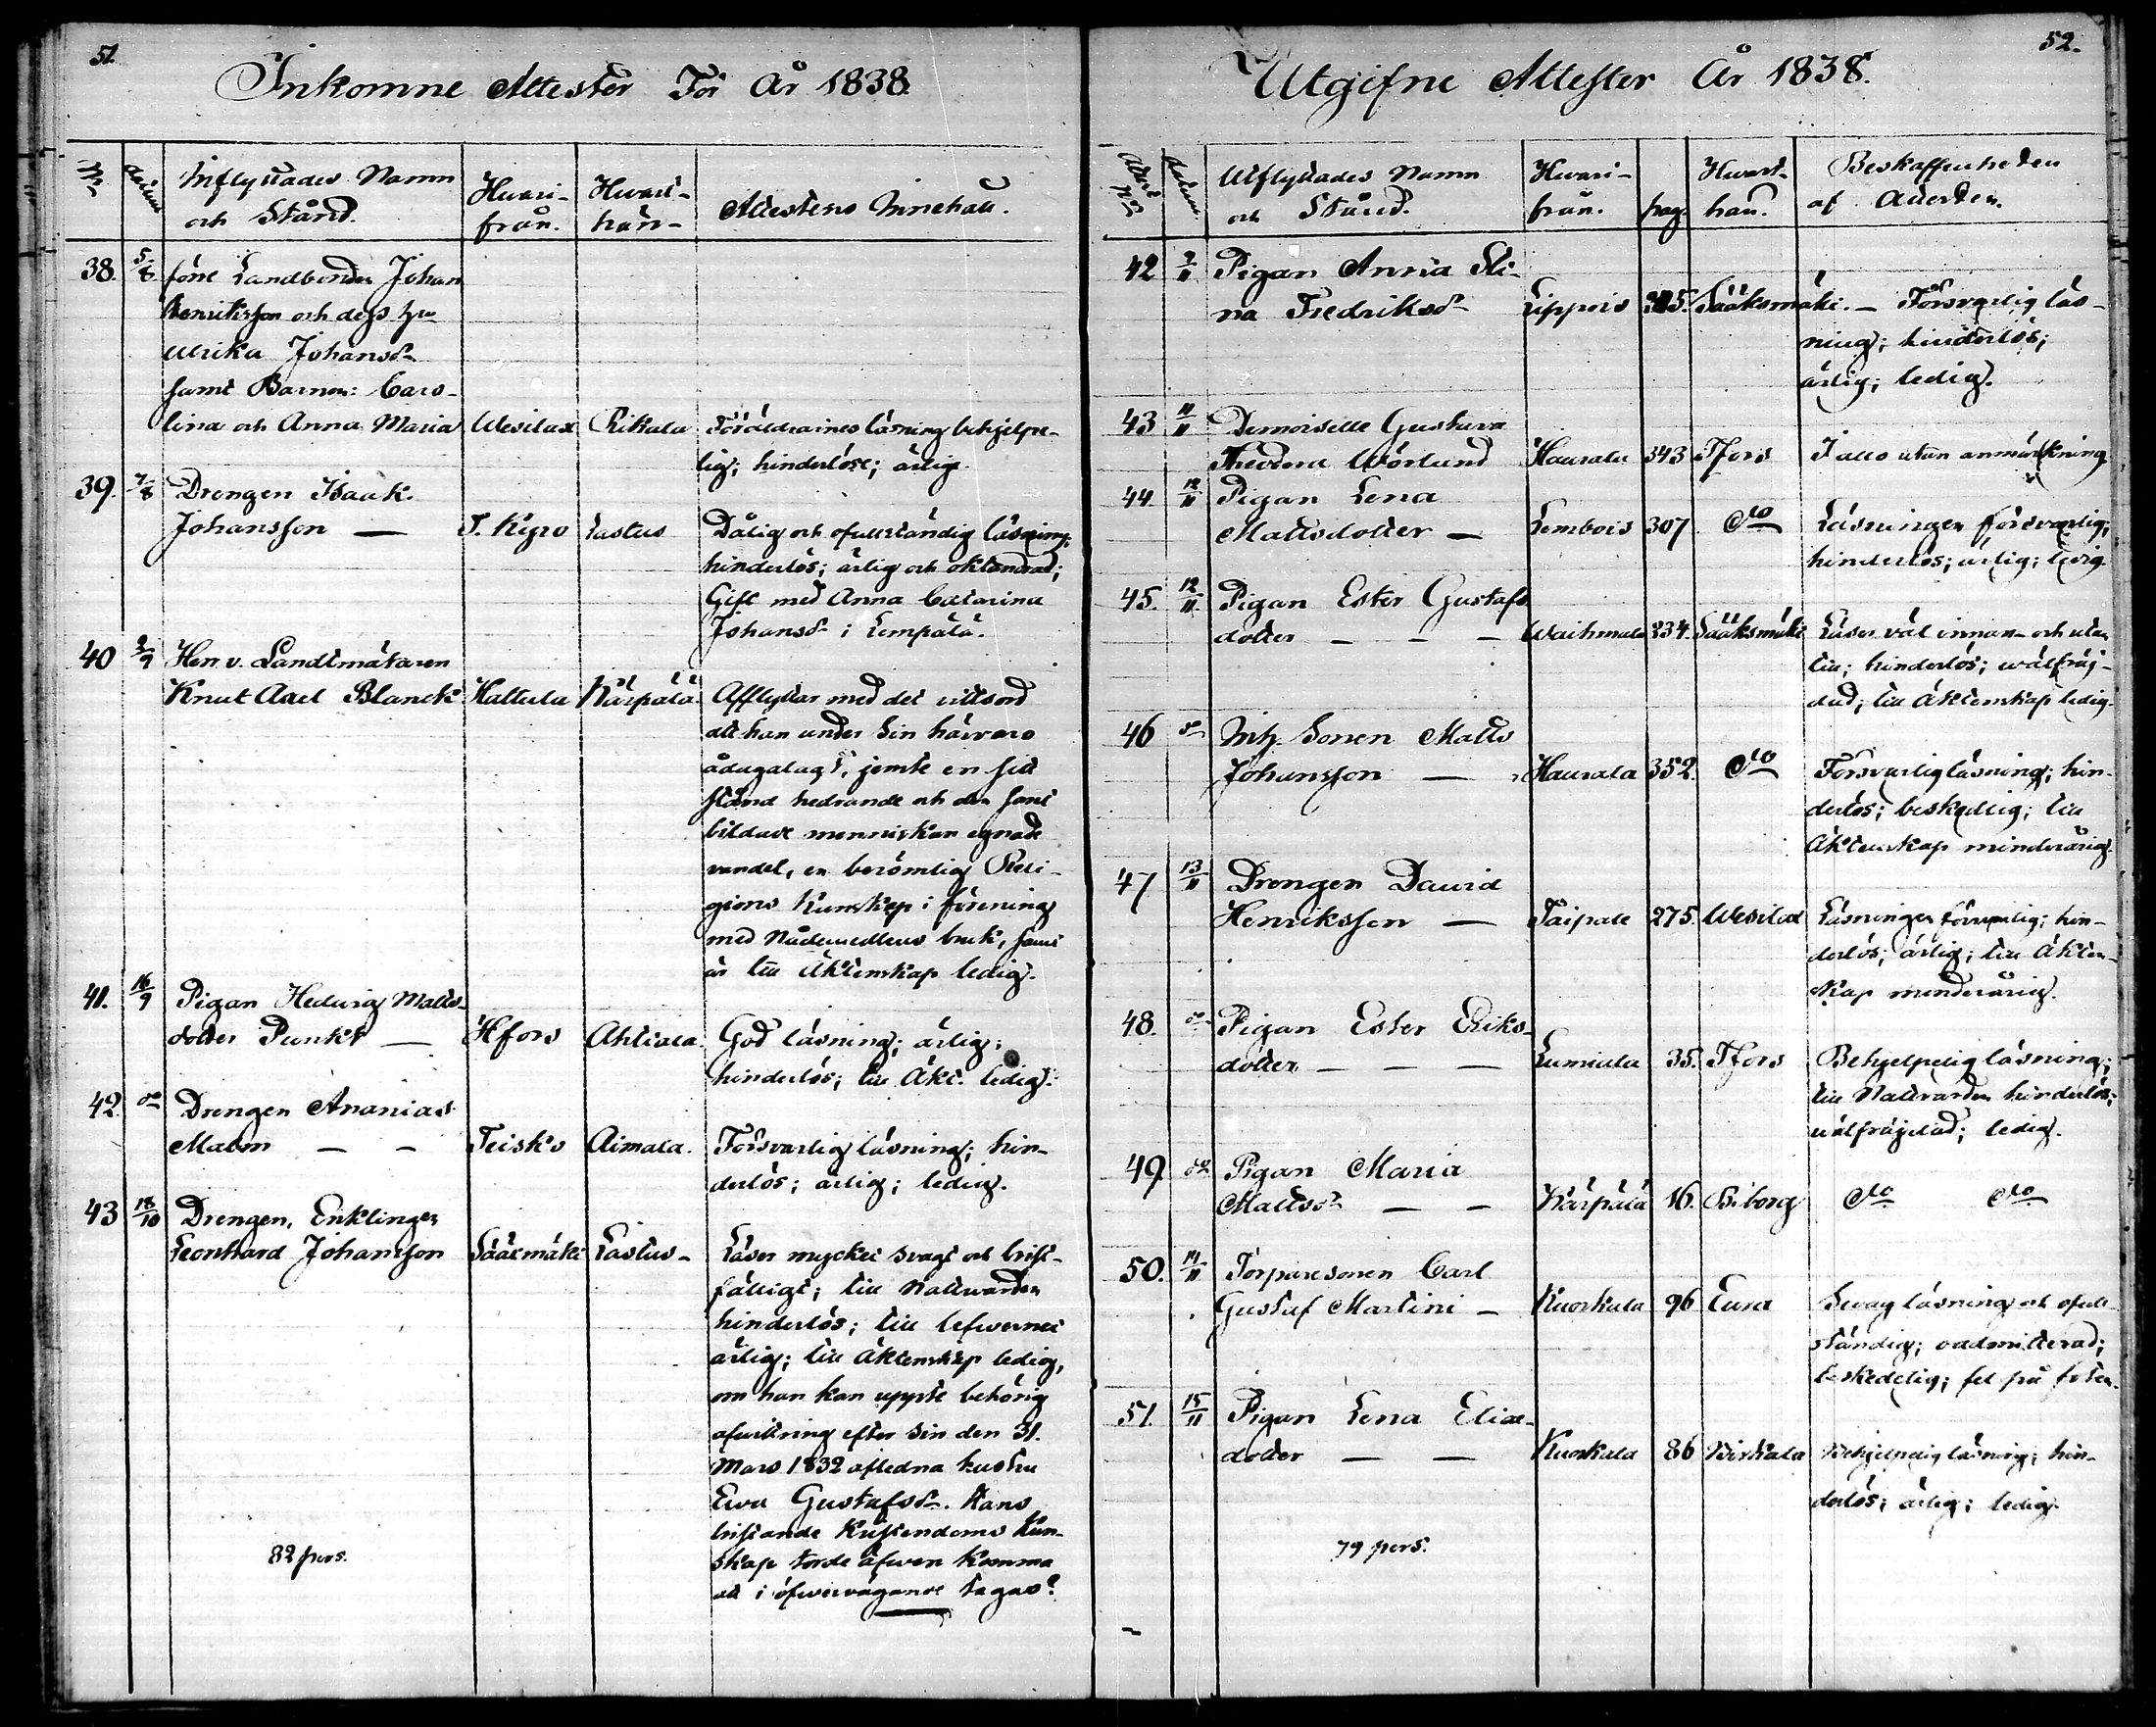 51.
Inkomne Attester För År 1838.
No
Datum
Inflyttades Namn
och Stånd.
Hvari-
från.
Hvart-
hän-
Attestens Innehåll.
38. 5/8 förre Landbonden Johan
Henriksson och dess hu
Ulrika Johansdr
samt Barnen: Caro-
lina och Anna Maria Wesilax Rikala Föräldrarnes läsning behjelpe-
lig; hinderlöse; ärlige.
39. 7/8 Drengen Isaak
Johansson — T. Kyro Lastus Dålig och ofullständig läsning;
hinderlös; ärlig och oklandrad;
Gift med Anna Catarina
Johansdr i Lempälä.
40 2/9 Herr v. Landtmätaren
Knut Axel Blanck Hattula Kärpälä Afflyttar med det vittsord
att han under sin härvaro
ådagalagt, jemte en sitt
stånd hedrande och den sant
bildade menniskan egnade
vandel, en berömlig Reli-
gions Kunskap i förening
med Nådemedlens bruk, samt
är till Äktenskap ledig.
41. 16/9 Pigan Hedwig Matts-
dotter Punkt — Hfors Ahtiala. God läsning; ärlig;
hinderlös; till Äkt. ledig.
42. do Drengen Ananias
Malm — — Teisko Aimala. Försvarlig läsning; hin-
derlös; ärlig; ledig.
43 18/10 Drengen, Enklingen
Leonhard Johansson Sääxmäki Lastus- Läser mycket svagt och brist-
fälligt; till Nattvarden
hinderlös; till lefvernet
ärlig; till Äktenskap ledig,
om han kan uppte behörig
afwittring efter sin den 31.
Mars 1832 afledna hustru
Ewa Gustafsdr. Hans
bristande Kristendoms Kun-
skap torde äfwen komma
att i öfwervägande tagas?
82 pers.
52.
Utgifne Attester År 1838.
Attest
No
Datum
Utflyttades Namn
och Stånd.
Hvari-
från.
pag.
Hvart-
hän.
Beskaffenheten
af Attesten.
42 9/11 Pigan Anna Sti-
na Fredriksdr Lippois 315. Sääksmäki. — Försvarlig läs-
ning; hinderlös;
ärlig; ledig.
43 11/11 Demoiselle Gustava
Theodora Wörlund Haurala 343 Tfors I allo utan anmärkning
44. 12/11 Pigan Lena
Mattsdotter — Lembois 307 do Läsningen försvarlig;
hinderlös; ärlig; ledig.
45. 12/11 Pigan Ester Gustafs
dotter — — — Waihmala 334. Sääksmäki Läser väl innan- och utan
till; hinderlös; wälfräj-
dad; till Äktenskap ledig.
46 do Inh. Sonen Matts
Johansson — Haurala 352. do Försvarlig läsning; hin-
derlös; beskedlig; till
Äktenskap minderårig.
47 13/11 Drengen David
Henriksson — Taipale 275. Wesilax Läsningen försvarlig; hin-
derlös; ärlig; till Äkten-
skap minderårig.
48. do Pigan Ester Eriks-
dotter — — — Lumiala 35. Tfors Behjelpelig läsning;
till Nattvarden hinderlös;
wälfräjdad; ledig.
49. do Pigan Maria
Mattsdr — — Kärpälä 16. B:borg do do
50. 14/11 Torparesonen Carl
Gustaf Martini — Kuorkala 96 Eura Swag läsning och ofull-
ständig; oadmitterad;
beskedelig; fel på foten.
51. 15/11 Pigan Lena Elias-
dotter — — Kuorkala 86 Birkala Behjelpelig läsning; hin-
derlös; ärlig; ledig.
79 pers.